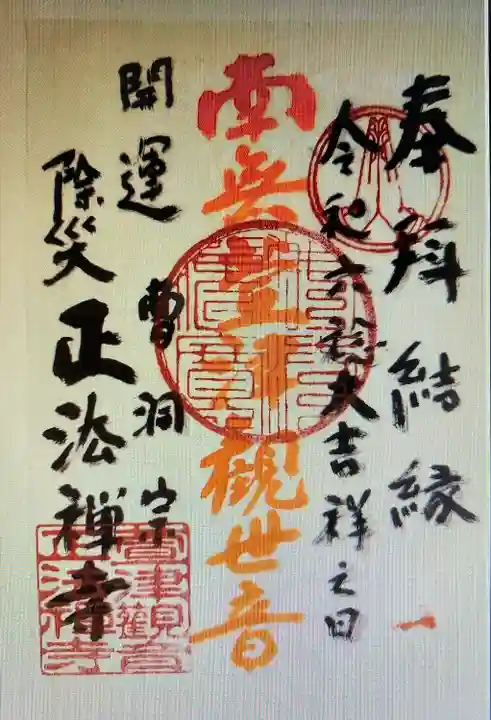 奉拜 結縁
一
令和六稔大吉祥之日
南無津観世音
開運 曹洞宗
除災 正法禅寺
津觀音
正法禅寺